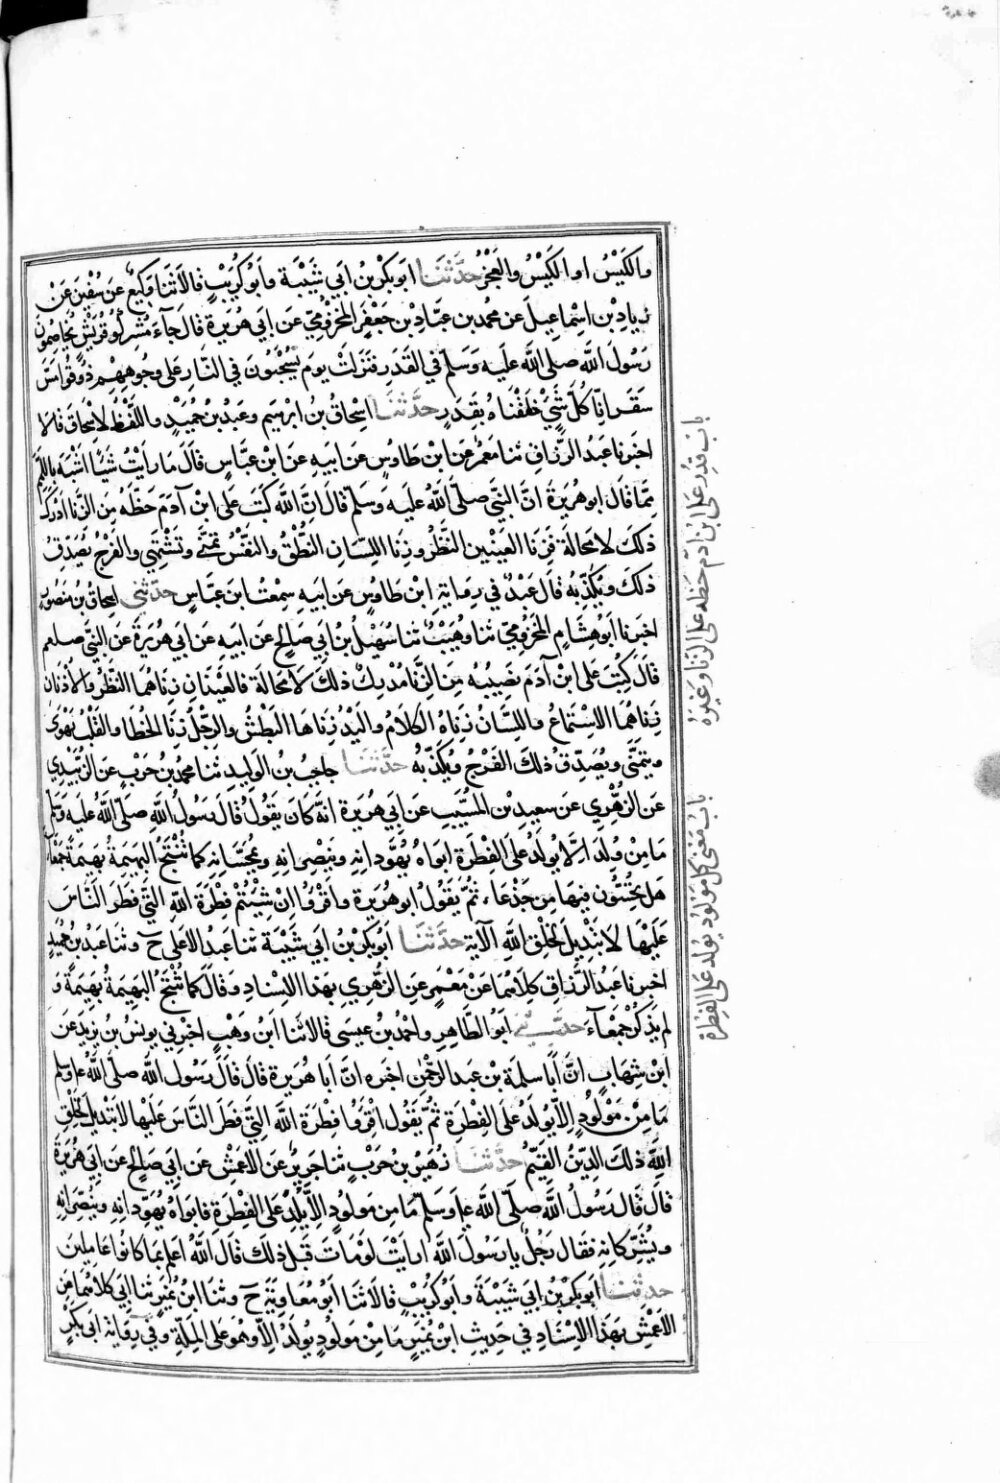 والكَيْسُ او الكَيْسُ والعَجْزُ حَدَّثَنَا ابَوبَكرِبنُ ابَي شَيْبَة وابَوُكُرَيْبٍ قالاَثَنَا وَكيعٌ عَن سُفْينَ عَنْ
زيادِ بن اِسْماعيلَ عن محمد بن عبَّادِ بن جَعْفَرٍ المخزُوميّ عَن ابي هُرَيرةَ قالَ جَآءَ مُشرِكُو قُرَيشٍ يُخاصِمُونَ
رَسُولَ اللّه صلى اللّه عليَه وَسَلّم في القَدَرِ فنَزلَتْ يومَ يُسْحَبُونَ في النّارِ على وُجوُهِهِم ذوُقوا مَسَّ
سَقَر انّا كُلَّ شَيْءٍ خَلَقْناهُ بِقَدَرٍ حَدَّثَنَا اِسْحاقُ بنُ ابرهيم وعَبْدُ بنُ حُمَيْدٍ واللّفْظُ لاسْحاقَ قالا
اخبَرنا عَبدُ الرَّزاقِ ثنا مَعْمَرٌ عَن ابن طَاوُسٍ عَن ابَيهِ عَن ابْنِ عَبّاسٍ قالَ مَا رَايْتُ شَيْأً اشْبَهَ باللَّمَمِ
ممّا قالَ ابوهُرَيرةَ انَّ النّبيَّ صلّى اللّهُ عليَه وَسَلمّ قالَ اِنَّ اللّهَ كَتَبَ عَلى ابْن آدَمَ حَظّهُ مِن الزِّنا ادْرَكَ
ذلكَ لا مَحالَةَ فَزِنَا العَيْنَينِ النَّظَرُ وزِنَا اللِّسَانِ النُّطْقُ والنّفْسُ تَمَنّى وَتَشْتَهي والفَرْجُ يُصَدِّقُ
ذلكَ ويُكَذِّبُهُ قالَ عَبْدٌ في رِوايةِ ابْن طَاوُسٍ عَن ابيَهِ سِمعْتُ ابنَ عَبّاسٍ حَدّثَني اسِحاقُ بنُ مَنصُورٍ
اخبَرَنا ابَوُهِشَامٍ المَخزُوميّ ثنا وُهَيبٌ ثنا سُهَيْلُ بنُ ابي صَالحٍ عَن ابيَه عَن ابَي هُرَيرةَ عَنِ النّبيّ صلعم
قالَ كُتِبَ على ابْن آدَمَ نَصيبُهُ مِنَ الزِّنا مُدْرِكٌ ذلكَ لامَحالَةَ فالعَيْنانِ زِناهُما النّظَرُ والاُذُنانِ
زِناهُما الاسْتِماعُ واللّسَانُ زِناهُ الكَلامُ واليَدُ زِناها البَطْشُ والرِّجْلُ زِنَا الخُطَا والقَلْبُ يَهْوَى
ويَتَمَنّى ويُصَدّقُ ذلك الفَرْجُ ويُكَذّبُهُ حَدَّثَنَا حاجِبُ بن الوَليدِ ثنا محمدُ بنُ حَرْبٍ عَن الزُبَيْدي
عَن الزُهْرِي عَن سَعيدِ بْن المُسَيّبِ عَن ابَي هُرَيرة انّه كَانَ يَقُولُ قالَ رَسُولُ اللّهِ صَلّى اللّهُ عليَه وسَلّم
مَا مِنْ مَولُودٍ اِلّا يُولَدُ على الفِطْرَة ابَواهُ يُهَوّدانِهِ ويُنَصّرانِهِ ويُمَجّسَانِه كَما تُنْتَجُ البَهيمَةُ بَهيمَةً جَمْعَاءَ
هَل تُحِسُّونَ فيهَا مِن جَدْعَاءَ ثمّ يَقُولُ ابوهُرَيرَة واقْرَؤُا انْ شِئْتُمْ فِطْرَةَ اللّهِ الّتي فَطَرَ النّاسَ
عَلَيْها لا تبْديلَ لخَلْقِ اللّهِ الآيَة حَدَّثَنَا ابَوبَكرِ بْنُ ابَي شَيْبَةَ ثَنا عَبدُ الاَعلى ح وثَنا عَبدُ بنُ حُمَيْدٍ
اخبرَنا عَبدُ الرَّزاقِ كِلاَهُما عَنْ مَعْمَرٍ عَنِ الزّهْرِي بهَذا الاِسْنادِ وقَالَ كَما تُنْتَجُ البَهيمَةُ بَهيمَةً وَ
لم يَذكُرْ جَمْعآءَ حَدَّثَني ابَوُ الطّاهِرِ واحْمَدُ بن عيسَى قالا ثَنا ابنُ وَهْبٍ اخبَرني يونسُ بنُ يزيدَ عَن
ابْن شِهَابٍ انَّ أبَا سَلمَةَ بْن عَبد الرّحْمٰن اخبَره انّ ابَا هُرَيرَة قالَ قالَ رَسُولُ اللّه صلّى اللّهُ ع وسلم
مَا مِنْ مَوْلُودٍ اِلاّ يُولَدُ على الفِطْرَة ثُمَّ يَقُولُ اقْرَؤُا فِطْرَةَ اللّهِ الّتي فَطَرَ النَّاسَ عَلَيْها لاتَبْديلَ لخَلْقِ
اللّهِ ذلكَ الدّينُ القَيّمُ حَدَّثَنَا زُهَيرُ بنُ حَرْبٍ ثنا جَريرٌ عَن الاَعمَش عَن ابَي صَالحٍ عَن ابَي هُرَيرَةَ
قالَ قالَ رَسُولُ اللّه صَلّى اللّه ع وَسَلمّ مَا مِن مَولودٍ اِلاّ يُلِدَ على الفِطْرَةِ فابَواهُ يُهَوّدانِهِ ويُنَصّرانِهِ
ويُشَرّكانِهِ فقالَ رَجُلٌ يا رَسُولَ اللّه ارايَتَ لَوْمَاتَ قَبلَ ذلكَ قالَ اللّهُ اَعلم بمَا كَانوُا عَامِلينَ
حدثَنَا ابَوبكرِبْنُ ابَي شَيْبَةَ وأبَوُكُرَيْبٍ قالاَ ثَنا ابَوُمعَاوِيَةَ ح وثنا ابنُ نُمَيْرٍ ثنا ابَي كلاهُما عَن
الاَعْمَشِ بهَذا الاِسْنادِ في حَديثِ ابْن نُمَيْرٍ مَا مِنْ مَولُودٍ يُولَدُ اِلاّ وهُوَ على المِلّةِ وفي رِوايَةِ ابَي بَكرٍ
باب قُدِّرَ على ابن آدَم حَظه من الزنا وَغَيْرِهْ
باب مَعْنى كلّ مَوْلُودٍ يُولَد على الفِطْرَة